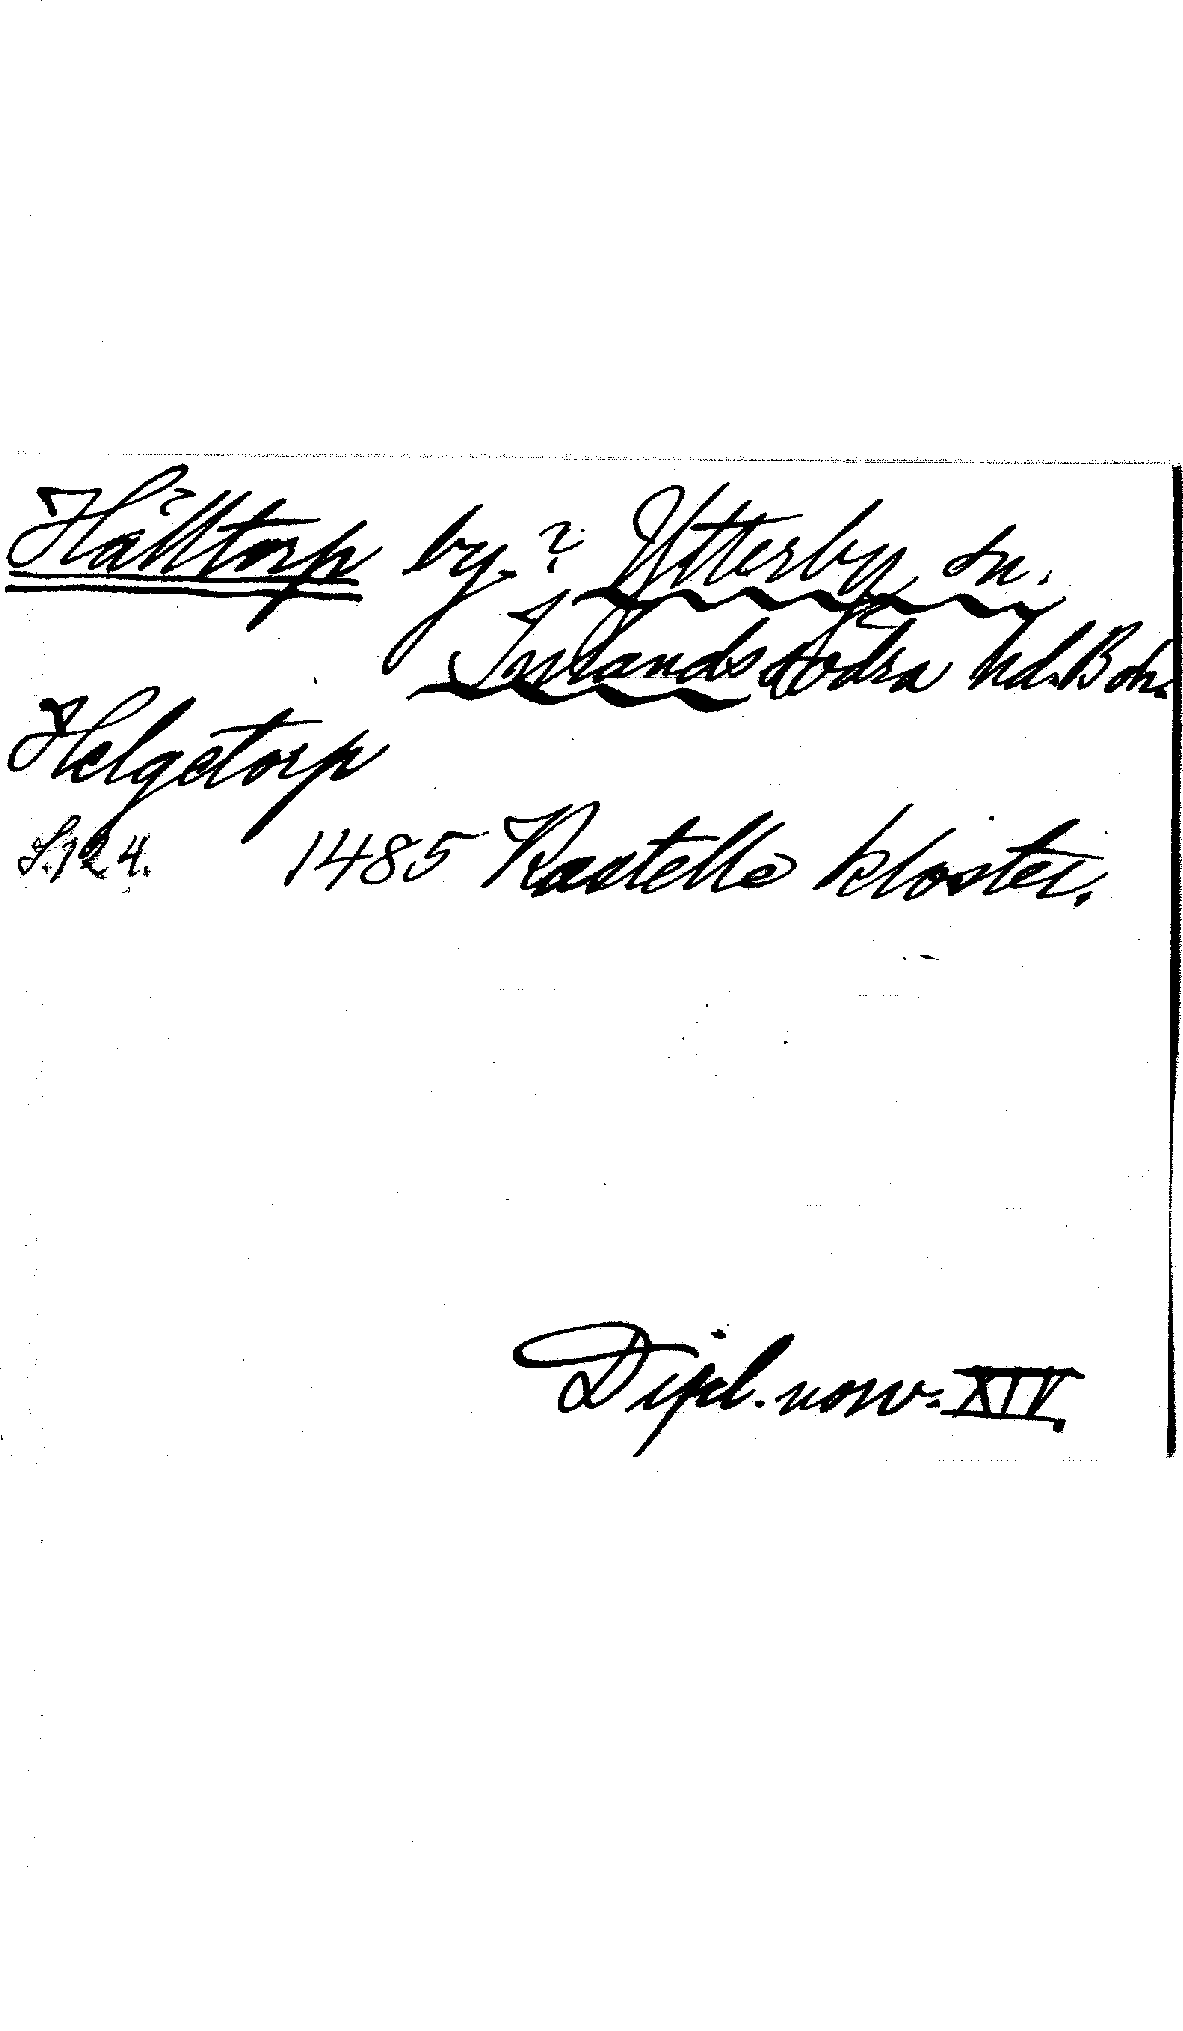 Hålltorp by.? Ytterby sn.
Inlands Södra hd. Boh.
Helgetorp
S.124. 1485 Kastelle kloster.
Dipl. norv. XIV.